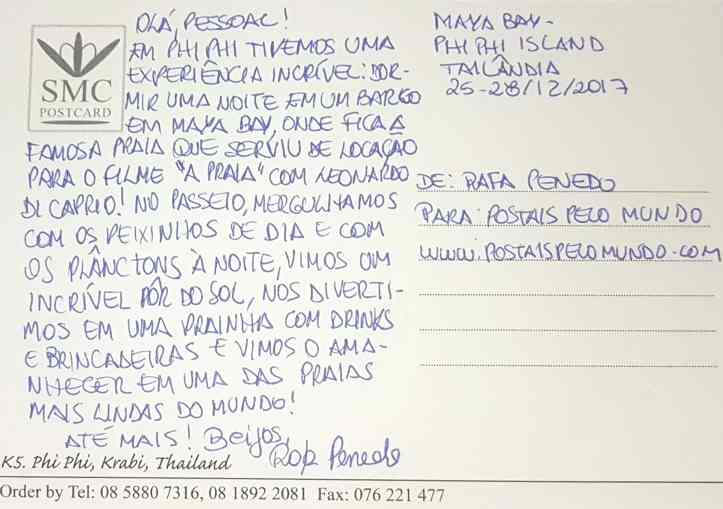 OLÁ, PESSOAL!
EM PHI PHI TIVEMOS UMA
EXPERIÊNCIA INCRÍVEL: DOR-
MIR UMA NOITE EM UM BARCO
EM MAYA BAY, ONDE FICA A
FAMOSA PRAIA QUE SERVIU DE LOCAÇÃO
PARA O FILME "A PRAIA" COM LEONARDO
DI CAPRIO! NO PASSEIO, MERGULHAMOS
COM OS PEIXINHOS DE DIA E COM
OS PLÂNCTONS À NOITE, VIMOS UM
INCRÍVEL PÔR DO SOL, NOS DIVERTI-
MOS EM UMA PRAINHA COM DRINKS
E BRINCADEIRAS E VIMOS O AMA-
NHECER EM UMA DAS PRAIAS
MAIS LINDAS DO MUNDO!
ATÉ MAIS! Beijos,
Rafa Penedo
SMC
POSTCARD
MAYA BAY-
PHI PHI ISLAND
TAILÂNDIA
25-28/12/2017
DE: RAFA PENEDO
PARA: POSTAIS PELO MUNDO
WWW.POSTAISPELOMUNDO.COM
K5. Phi Phi, Krabi, Thailand
Order by Tel: 08 5880 7316, 08 1892 2081 Fax: 076 221 477